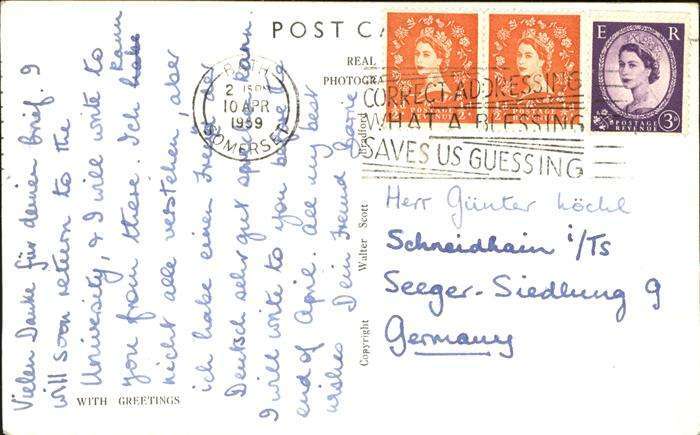 POST CA
REAL
PHOTOGRA
BATH
2 15 PM
10 APR
1959
SOMERSET
CORRECT ADDRESSING
WHAT A BLESSING
SAVES US GUESSING
E R
POSTAGE
REVENUE
3D
Vielen Danke für deinen brief. I
will soon return to the
University, & I will write to
you from there. Ich kann
nicht alle verstehen, aber
ich habe einen Freund der
Deutsch sehr gut sprechen kann.
I will write to you before the
end of April. All my best
wishes Dein Freund
WITH GREETINGS
Copyright Walter Scott Bradford
Herr Günter Löchl
Schneidhain i/Ts
Seeger-Siedlung 9
Germany